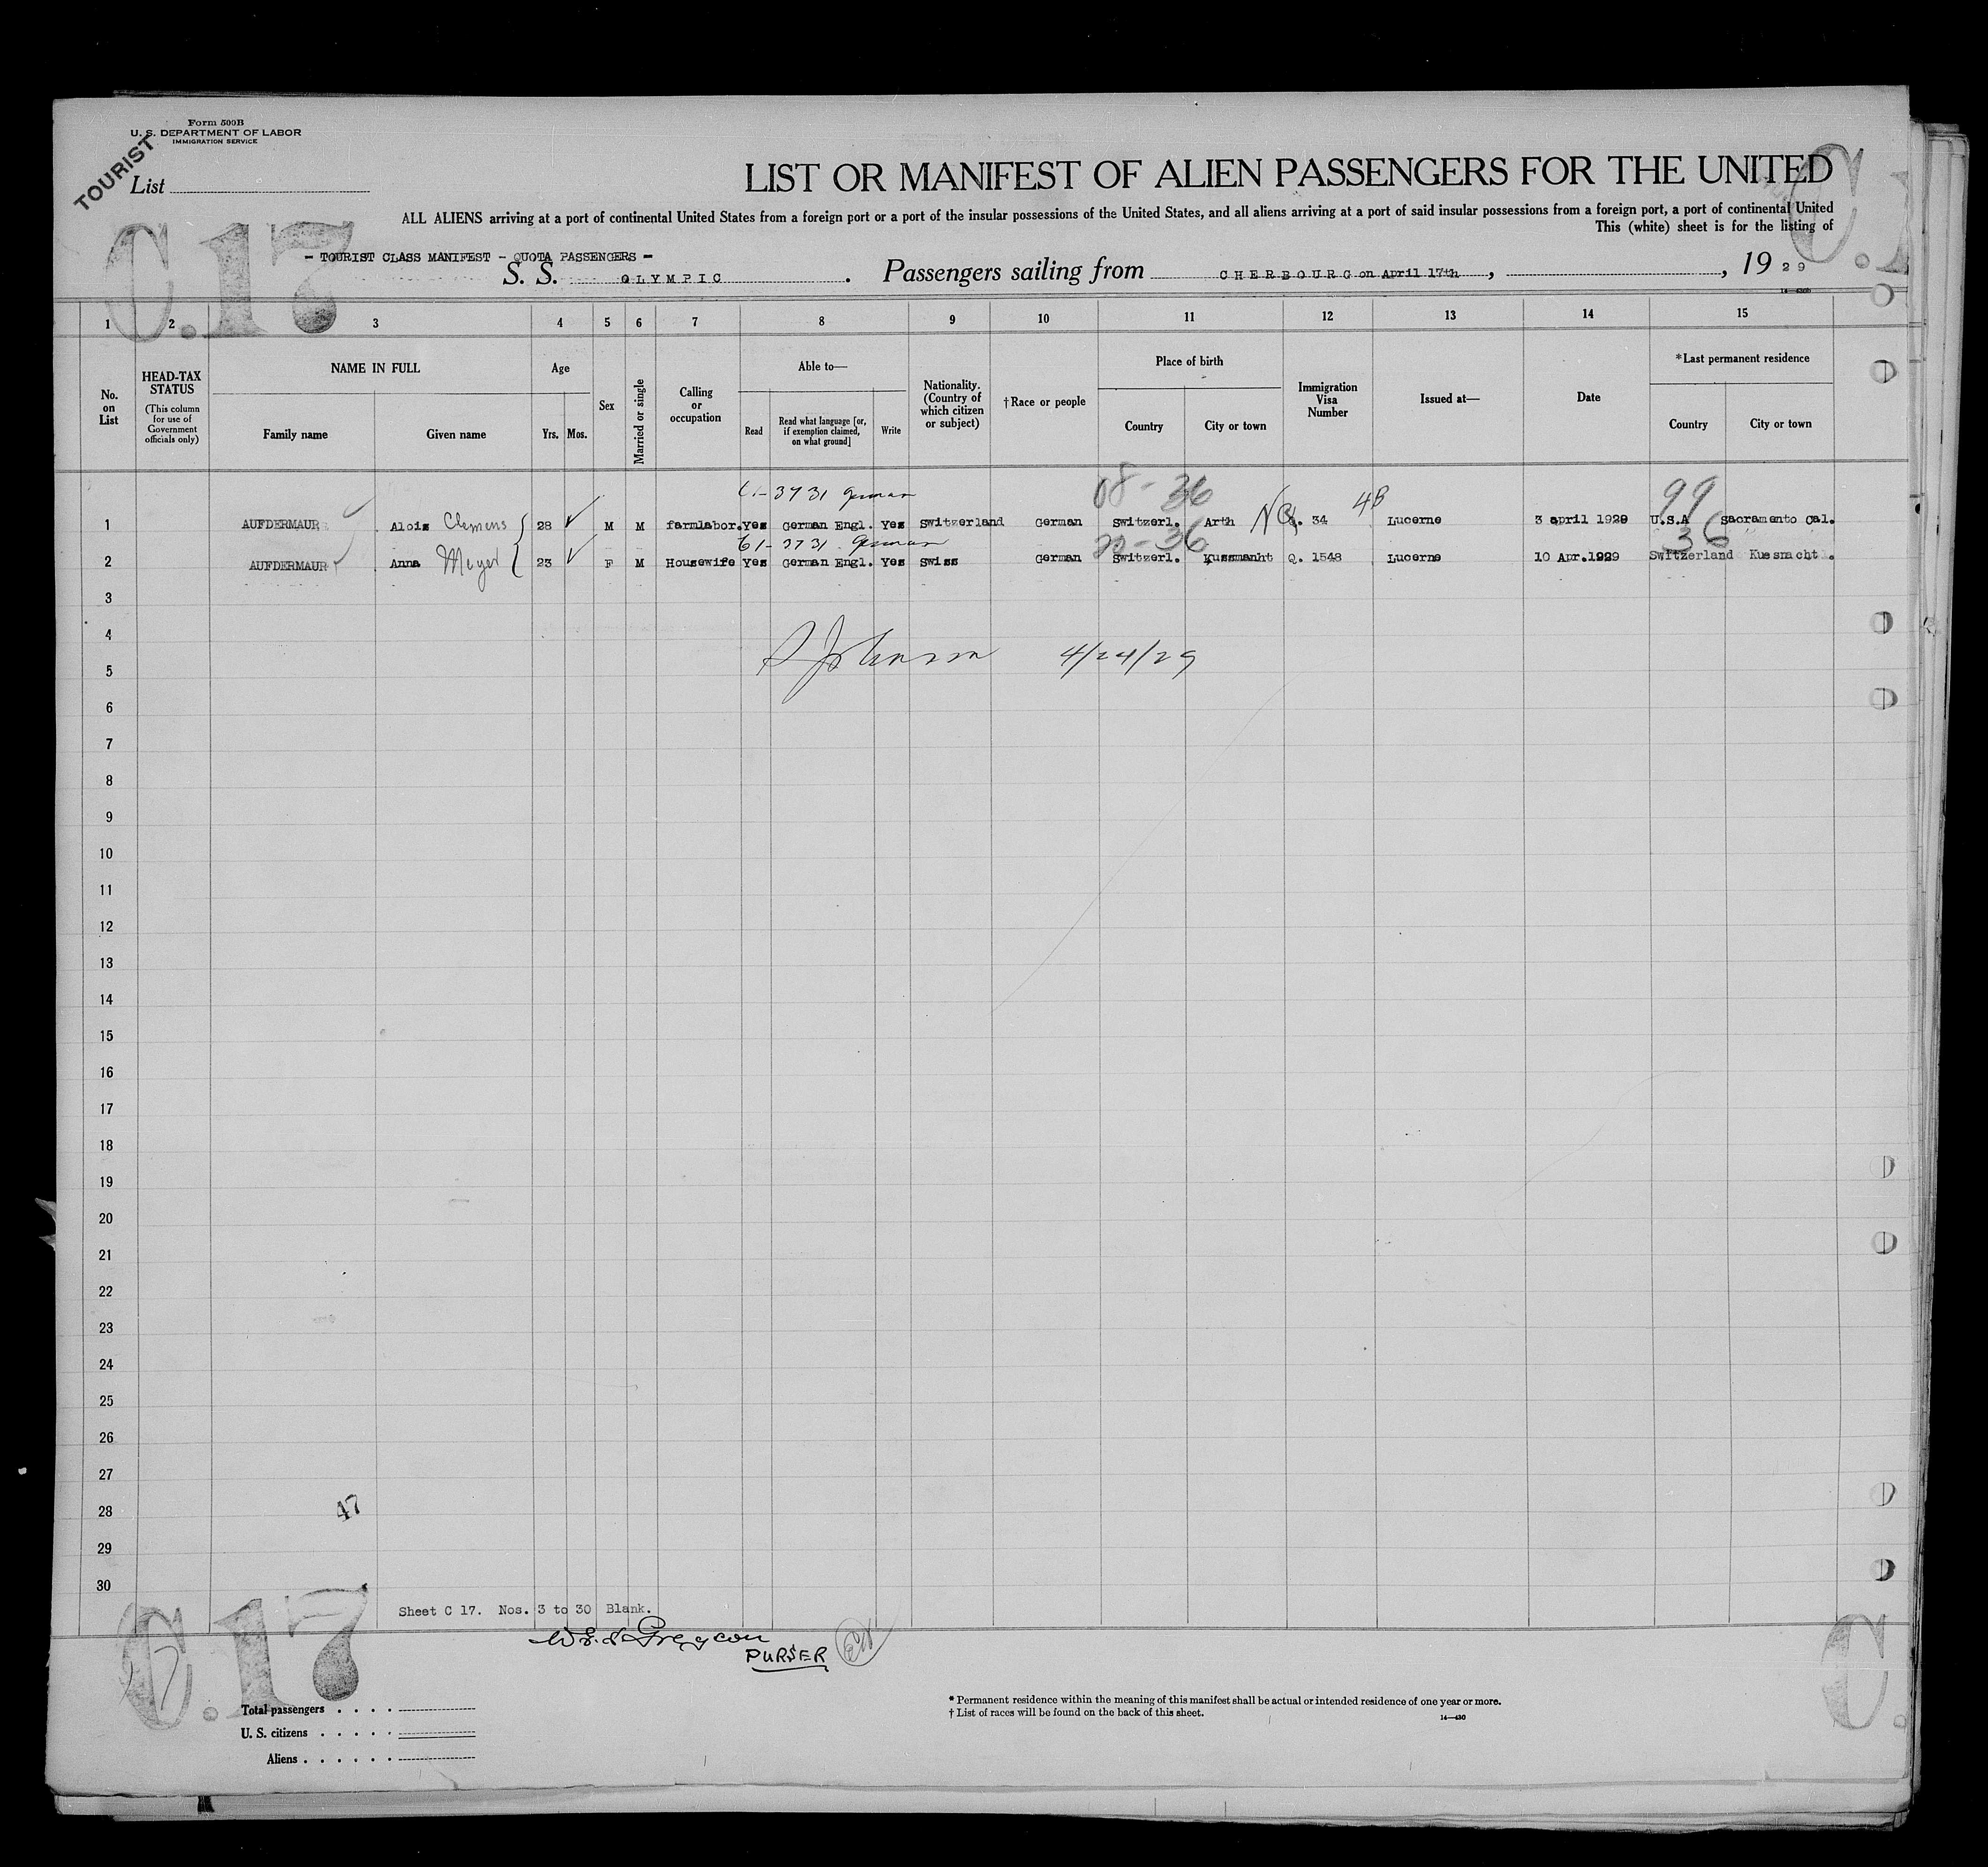 Form 500B
U. S. DEPARTMENT OF LABOR
IMMIGRATION SERVICE
TOURIST
List
LIST OR MANIFEST OF ALIEN PASSENGERS FOR THE UNITED
C.17
ALL ALIENS arriving at a port of continental United States from a foreign port or a port of the insular possessions of the United States, and all aliens arriving at a port of said insular possessions from a foreign port, a port of continental United
This (white) sheet is for the listing of
- TOURIST CLASS MANIFEST - QUOTA PASSENGERS -
S. S. OLYMPIC. Passengers sailing from CHERBOURG on April 17th, , 19 29
1 2 3 4 5 6 7 8 9 10 11 12 13 14 15
No. on List
HEAD-TAX STATUS
(This column for use of Government officials only)
NAME IN FULL
Family name
Given name
Age
Yrs.
Mos.
Sex
Married or single
Calling or occupation
Able to—
Read
Read what language [or, if exemption claimed, on what ground]
Write
Nationality. (Country of which citizen or subject)
†Race or people
Place of birth
Country
City or town
Immigration Visa Number
Issued at—
Date
*Last permanent residence
Country
City or town
3731 German 08-36 4B 99
1 AUFDERMAUR Alois Clemens 28 M M farmlabor. Yes German Engl. Yes Switzerland German Switzerl. Arth NQ. 34 Lucerne 3 april 1929 U.S.A Sacramento Cal.
61-3731 German 36 36
2 AUFDERMAUR Anna Meyer 23 F M Housewife Yes German Engl. Yes Swiss German Switzerl. Kussmanht Q. 1548 Lucerne 10 Apr.1929 Switzerland Kussnacht.
3
4
Johnson 4/24/29
5
6
7
8
9
10
11
12
13
14
15
16
17
18
19
20
21
22
23
24
25
26
27
28 47
29
30
Sheet C 17. Nos. 3 to 30 Blank.
PURSER
C.17
C.
Total passengers
U. S. citizens
Aliens
* Permanent residence within the meaning of this manifest shall be actual or intended residence of one year or more.
† List of races will be found on the back of this sheet.
14—430